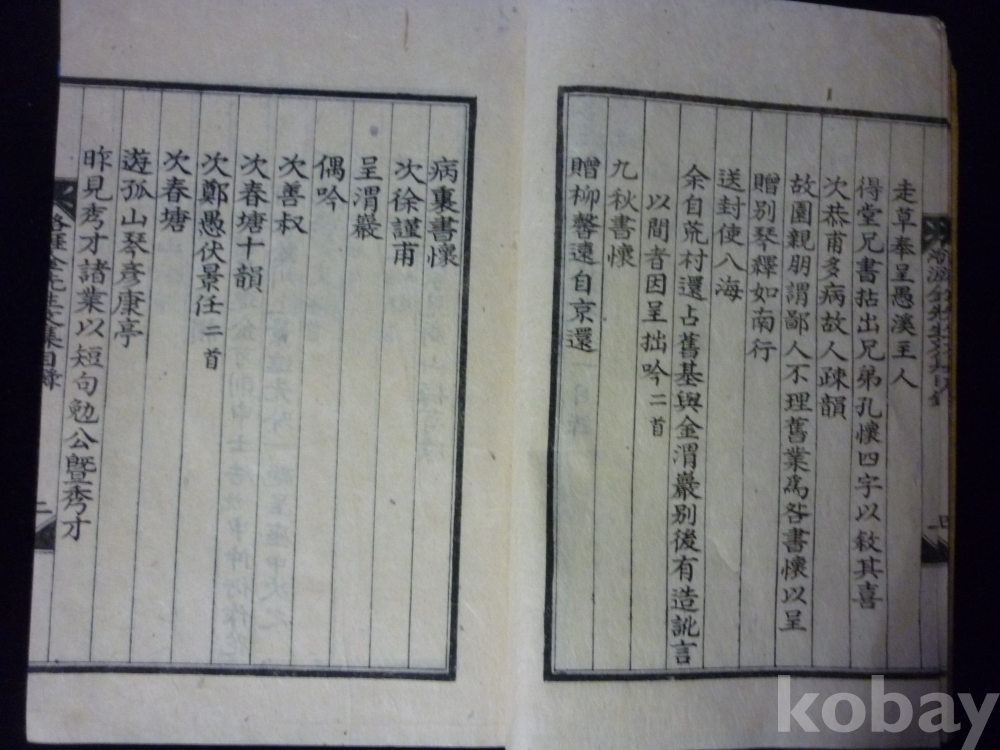 走草奉呈愚溪主人
得堂兄書拈出兄弟孔懷四字以敘其喜
次恭甫多病故人疎韻
故園親朋謂鄙人不理舊業爲咎書懷以呈
贈別琴釋如南行
送封使八海
余自荒村還占舊基與金渭巖別後有造訛言
以間者因呈拙吟二首
九秋書懷
贈柳馨遠自京還
病裏書懷
次徐謹甫
呈渭巖
偶吟
次善叔
次春塘十韻
次鄭愚伏景任二首
次春塘
遊孤山琴彥康亭
昨見秀才諸業以短句勉公曁秀才
二
kobay